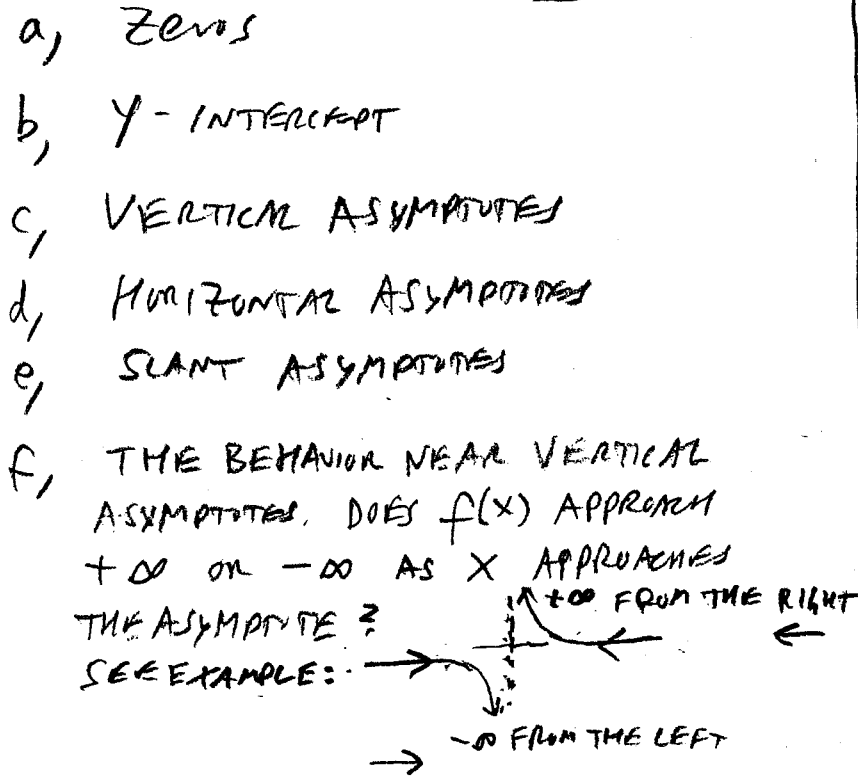 a, Zeros
b, Y-INTERCEPT
c, VERTICAL ASYMPTOTES
d, HORIZONTAL ASYMPTOTES
e, SLANT ASYMPTOTES
f, THE BEHAVIOR NEAR VERTICAL
ASYMPTOTES. DOES f(x) APPROACH
+∞ OR -∞ AS X APPROACHES
THE ASYMPTOTE?
+∞ FROM THE RIGHT
SEE EXAMPLE:
-∞ FROM THE LEFT